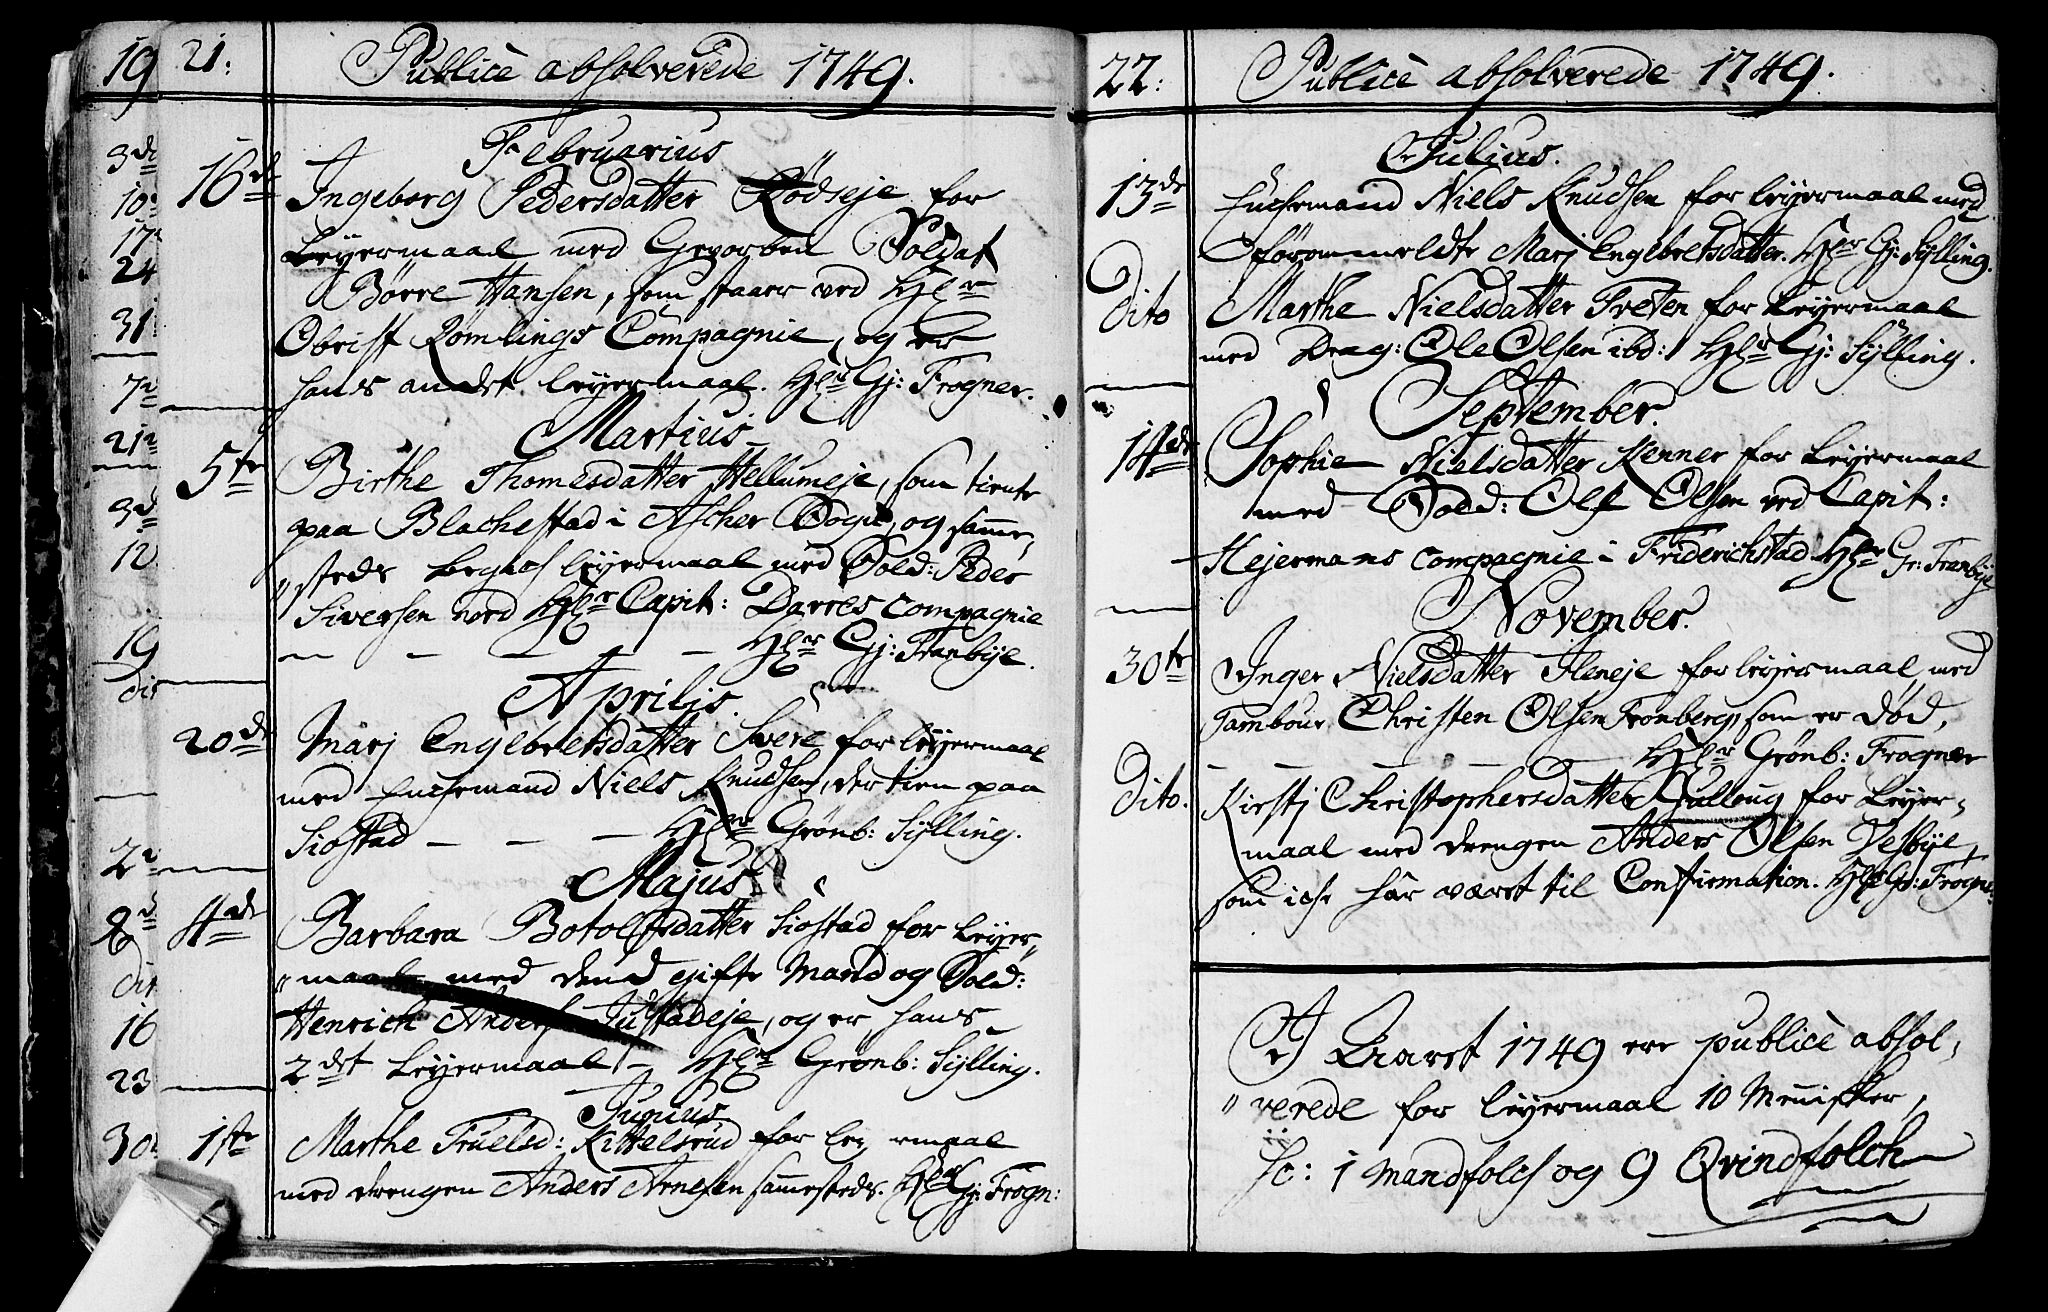 19 21: Publicè absolverede 1749.
Februarius
16de Ingeborg Pedersdatter Rödseje for
Leyermaal med Gevorben Soldat
Börre Hansen, som staaer ved Hlr
Obrist Römlings Compagnie, og er
hans andet leyermaal. Hlr Gj: Frogner.
Martius
5te Birthe Thomesdatter Hellumeje, som tiente
paa Blachestad i Ascher Sogn, og samme„
„steds begik leyermaal med Sold: Peder
Siversen ved Hlr Capit: Darres Compagnie
— — — — Hlr Gj: Tranbye.
Aprilis.
20de Marj Engebretsdatter Svere for leyermaal
med Enchemand Niels Knudsen, der tien paa
Siostad — — — Hlr Grönb: Sylling.
Majus
4de Barbara Botolfsdatter Siostad for Leyer„
„maal med den gifte Mand og Sold:
Henrich Anders Justadeje, og er hans
2det Leyermaal — Hlr Grönb: Sylling.
Junius
1ste Marthe Truelsd: Kittelsrud for ley ermaal
med drengen Anders Arnesen sammesteds. Hlr Gj: Frogn:
3de
10
17
24
31
7
21
3d
12
19
dit
2
8d
dit
16
23
30
22: Publicè absolverede 1749.
Julius.
13de Enchemand Niels Knudsen for leyermaal med
förommeldte Marj Engebretsdatter. Hlr Gj: Sylling.
Dito Marthe Nielsdatter Treten for Leyermaal
med Drag: Ole Olsen ibd: Hlr Gj: Sylling.
September.
14de Sophie Nielsdatter Kenner for Leyermaal
med Sold: Ole Olsen ved Capit:
Hejermans Compagnie i Friderichstad Hlr Gr: Tranbye
November.
30te Inger Nielsdatter Ileneje for leyermaal med
Tambour Christen Olsen Tronberg, som er död,
— — — — — Hlr Grönb: Frogner
Dito. Kirstj Christophersdatter Gulloug for Leyer„
maal med drengen Anders Olsen Vesbye,
som iche har været til Confirmation. Hlr Gr: Frogner:
I Aaret 1749 ere publicè absol„
„verede for leyermaal 10 Mennisker,
Sc: 1 Mandfolch og 9 Qvindfolch